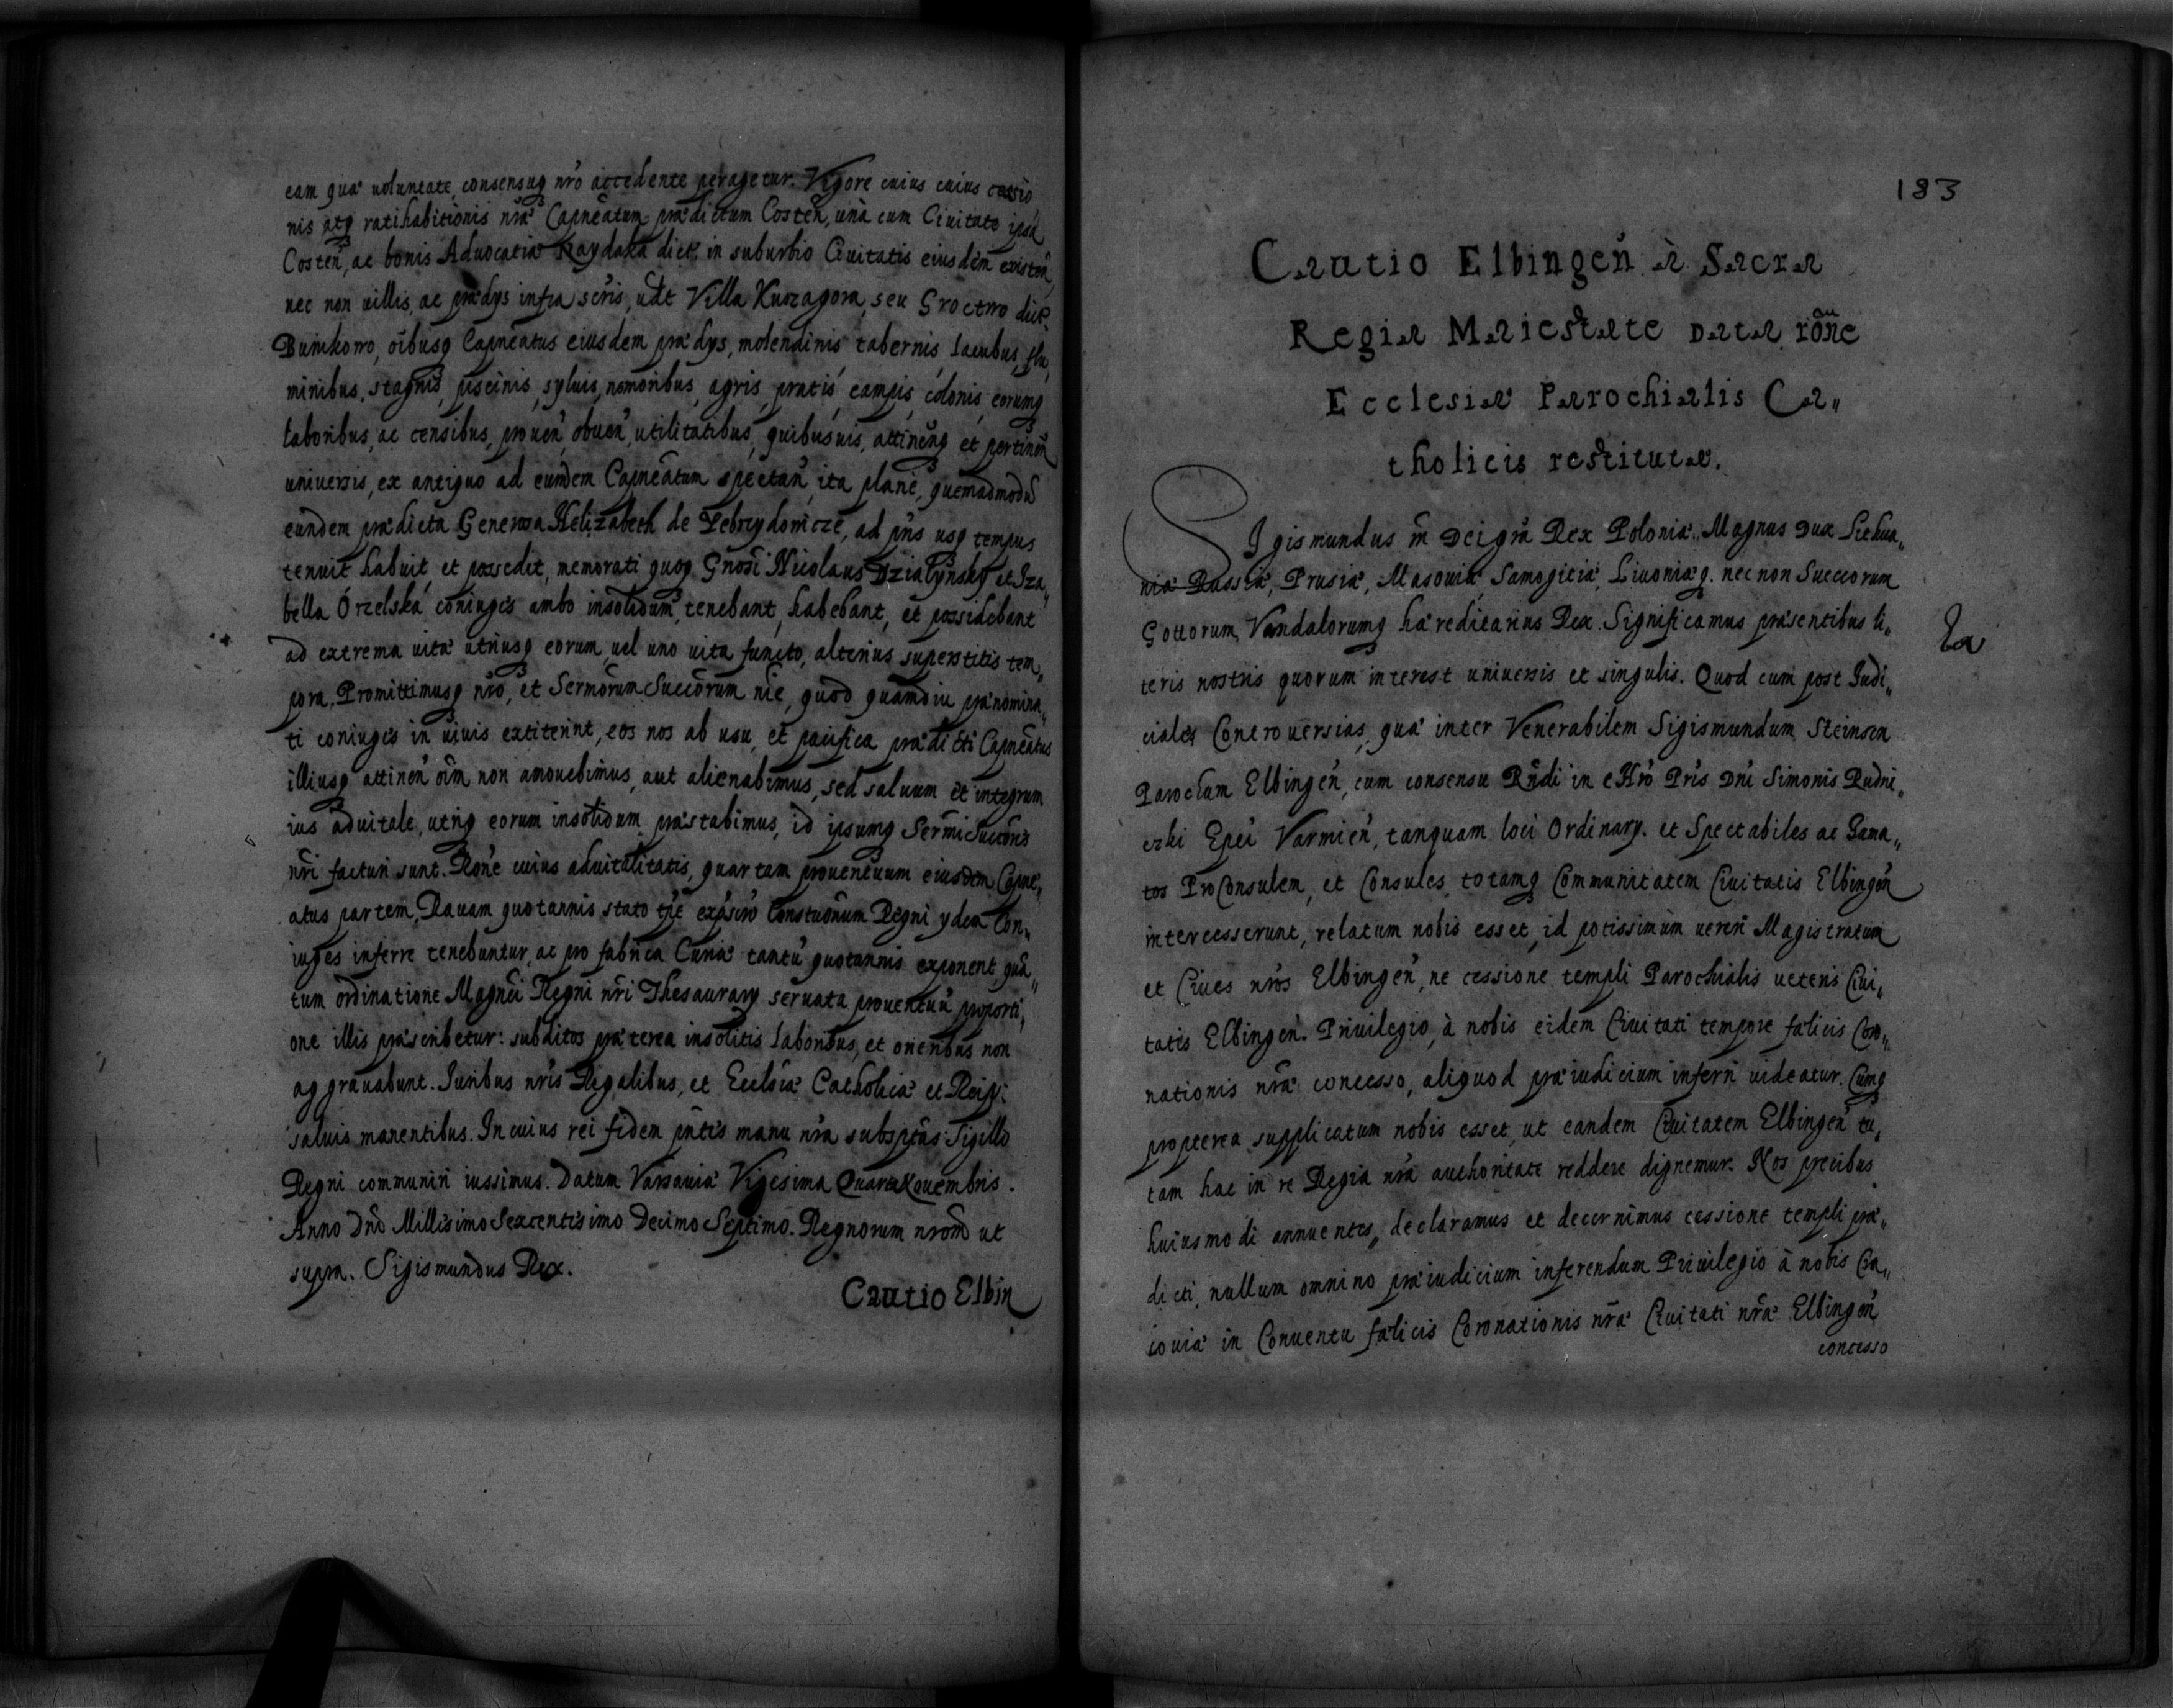 eam quæ uoluntate, consensuq nr̃o accedente peragetur. Vigore cuius cuius cessio
nis atq ratihabitionis nr̃æ Capnẽatum prædictum Costeñ, unà cum Ciuitate ipsa
Costeñ, ac bonis Aduocatiæ Raydaka dict. in suburbio Ciuitatis eiusdem existeñ,
nec non uillis, ac prædys infra scr̃is, udt Villa Kurzagora, seu Groctwo dict.
Bunikowo, oĩbusq Capneatus eiusdem prædys, molendinis tabernis, lacubus, flu,
minibus, stagnis, piscinis, syluis, nemoribus, agris, pratis, campis, colonis, eorumq
laboribus, ac censibus, proueñ, obueñ, utilitatibus, quibusuis, attineñq et pertineñ
uniuersis, ex antiquo ad eundem Capneatum spectañ, ita planè, quemadmodũ
eundem prædicta Generosa Helizabeth de Zebrzydowicze, ad pñs usq tempus
tenuit habuit, et possedit, memorati quoq Gnosi Nicolaus Dzialynsky et Iza,,
bella Orzelska coniuges ambo insolidum, tenebant, habebant, et possidebant
ad extrema uitæ utriusq eorum, uel uno uita functo, alterius superstitis tem,,
pora. Promittimusq nr̃o, et Sermõrum Succõrum nĩe, quòd quamdiu prænomina,,
ti coniuges in uiuis extiterint, eos nos ab usu, et pacifica prædicti Capneatus
illiusq attineñ oĩm non amouebimus, aut alienabimus, sed saluum et integrum
ius aduitale, utriq eorum insolidum præstabimus, id ipsumq Sermi Succõres
nr̃i facturi sunt. Rõne cuius aduitalitatis, quartam prouentuum eiusdem Capne,,
atus partem, Rauam quotannis stato tp̃e ex præscr̃o Constuõnum Regni ydem Con,,
iuges inferre tenebuntur, ac pro fabrica Curiæ tantũ quotannis exponent quã,,
tum ordinatione Magnci Regni nr̃i Thesaurary seruata prouentuũ proporti,,
one illis præscribetur: subditos præterea insolitis laboribus, et oneribus non
aggrauabunt. Iuribus nr̃is Regalibus, et Ecclsiæ Catholicæ et Reip.
saluis manentibus. In cuius rei fidem pñtes manu nr̃a subscptas Sigillo
Regni communiri iussimus. Datum Varsauiæ Vigesima Quarta Nouembris.
Anno Dñi Millisimo Sexcentisimo Decimo Septimo. Regnorum nrorũ ut
supra. Sigismundus Rex.
Cautio Elbin
183
Cautio Elbingeñ à Sacra
Regia Maiestate data rõne
Ecclesiæ Parochialis Ca,,
tholicis restitutæ.
Sigismundus III Dei grã Rex Poloniæ, Magnus Dux Lithua,,
niæ Russiæ, Prusiæ, Masouiæ, Samogitiæ, Liuoniæq. nec non Succorum
Gottorum, Vandalorumq hæreditarius Rex. Significamus præsentibus li,,
teris nostris quorum interest uniuersis et singulis. Quod cum post Iudi,,
ciales Controuersias, quæ inter Venerabilem Sigismundum Steinson
Parochum Elbingeñ, cum consensu Rñdi in Chro Pris Dñi Simonis Rudni,,
czki Epci Varmieñ, tanquam loci Ordinary. et Spectabiles ac Fama,,
tos ProConsulem, et Consules totamq Communitatem Ciuitatis Elbingeñ
intercesserunt, relatum nobis esset, id potissimùm uereri Magistratum
et Ciues nr̃os Elbingeñ, ne cessione templi Parochialis ueteris Ciui,,
tatis Elbingeñ. Priuilegio, à nobis eidem Ciuitati tempore fælicis Coro,,
nationis nr̃æ concesso, aliquod præiudicium inferri uideatur. Cumq
propterea supplicatum nobis esset, ut eandem Ciuitatem Elbingeñ tu,,
tam hac in re Regia nr̃a authoritate reddere dignemur. Nos precibus
huiusmodi annuentes, declaramus et decernimus cessione templi præ,,
dicti, nullum omnino præiudicium inferendum Priuilegio à nobis Cra,,
couiæ in Conuentu fælicis Coronationis nr̃æ Ciuitati nr̃æ Elbingeñ
concesso